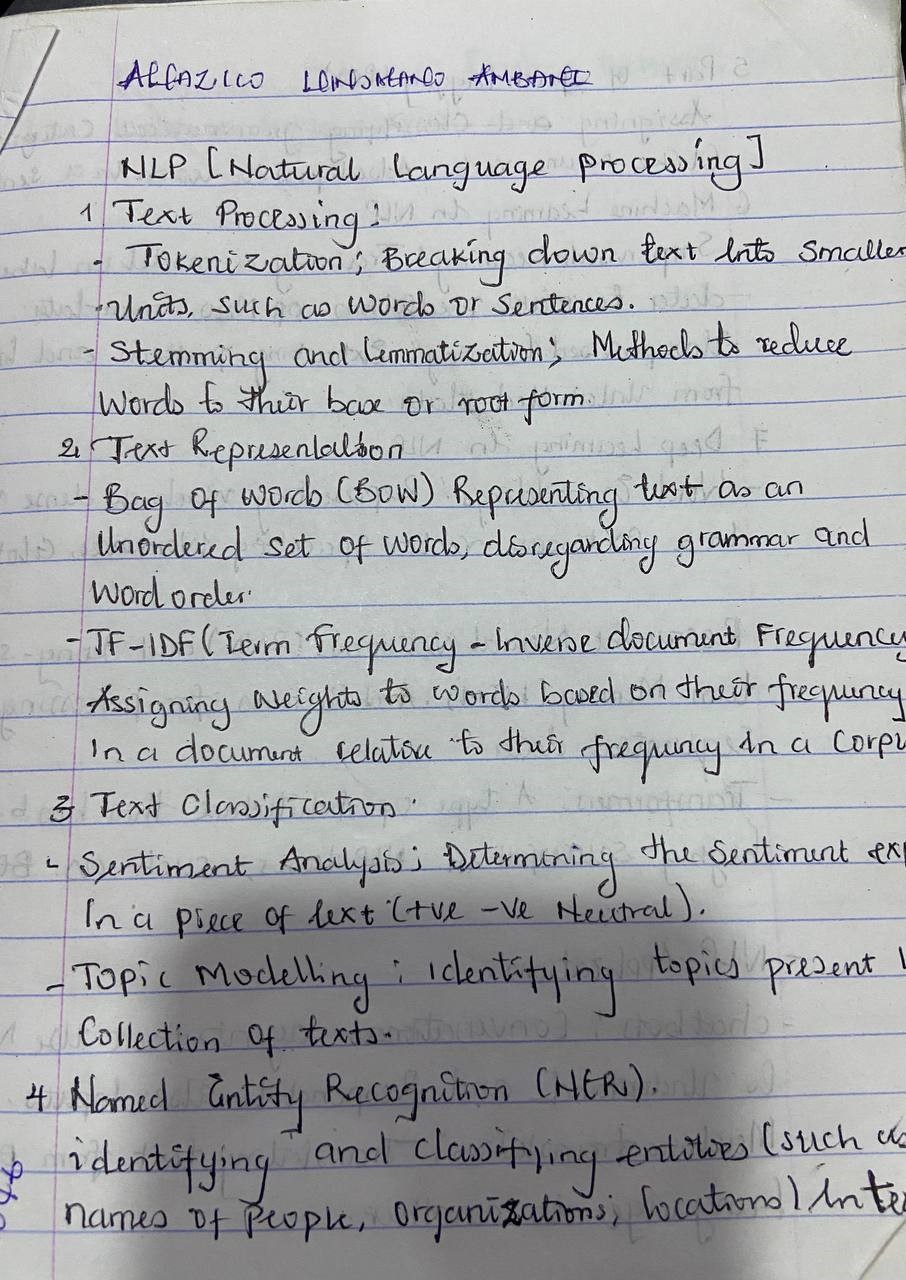 NLP [Natural Language processing]
1 Text Processing:
- Tokenization; Breaking down text Into smaller
Units, such as words or sentences.
- Stemming and Lemmatization; Methods to reduce
Words to their base or root form.
2, Text Representation
- Bag of words (BOW) Representing text as an
Unordered set of words, disregarding grammar and
Word order.
- TF-IDF (Term frequency - Inverse document Frequency
Assigning Weights to words based on their frequency
In a document relative to their frequency In a Corpu
3 Text Classification.
- Sentiment Analysis; Determining the sentiment exp
In a piece of text (+ve -ve Neutral).
- Topic Modelling; identifying topics present
Collection of texts.
4 Named Entity Recognition (NER).
identifying and classifying entities (such as
names of people, organizations, locations) In te